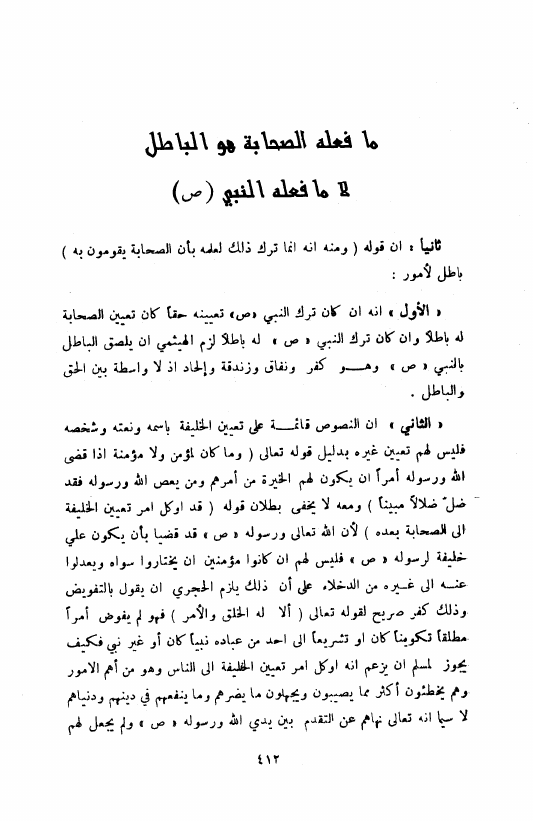 ما فعله الصحابة هو الباطل
لا ما فعله النبي (ص)
ثانياً : ان قوله ( ومنه انه انما ترك ذلك لعلمه بأن الصحابة يقومون به )
باطل لأمور :
« الأول » انه ان كان ترك النبي «ص» تعيينه حقاً كان تعيين الصحابة
له باطلاً وان كان ترك النبي « ص » له باطلاً لزم الهيثمي ان يلصق الباطل
بالنبي « ص » وهـــو كفر ونفاق وزندقة وإلحاد اذ لا واسطة بين الحق
والباطل .
« الثاني » ان النصوص قائمـــة على تعيين الخليفة باسمه ونعته وشخصه
فليس لهم تعيين غيره بدليل قوله تعالى ( وما كان لمؤمن ولا مؤمنة اذا قضى
الله ورسوله أمراً ان يكون لهم الخيرة من أمرهم ومن يعص الله ورسوله فقد
ضلّ ضلالاً مبيناً ) ومعه لا يخفى بطلان قوله ( قد اوكل امر تعيين الخليفة
الى الصحابة بعده ) لأن الله تعالى ورسوله « ص » قد قضيا بأن يكون علي
خليفة لرسوله « ص » فليس لهم ان كانوا مؤمنين ان يختاروا سواه ويعدلوا
عنـــه الى غـــيره من الدخلاء على أن ذلك يلزم الهجري ان يقول بالتفويض
وذلك كفر صريح لقوله تعالى ( ألا له الخلق والأمر ) فهو لم يفوض أمراً
مطلقاً تكويناً كان او تشريعاً الى احد من عباده نبياً كان أو غير نبي فكيف
يجوز لمسلم ان يزعم انه اوكل امر تعيين الخليفة الى الناس وهو من أهم الامور
وهم يخطئون أكثر مما يصيبون ويجهلون ما يضرهم وما ينفعهم في دينهم ودنياهم
لا سيما انه تعالى نهاهم عن التقدم بين يدي الله ورسوله « ص » ولم يجعل لهم
٤١٢